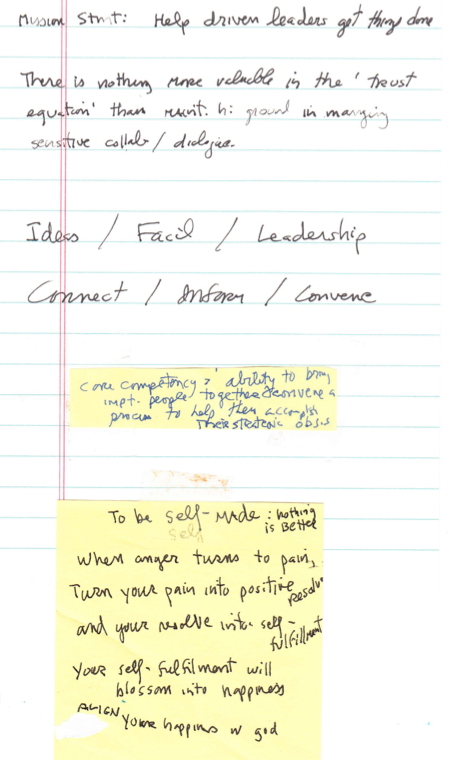 Mission Stmt: Help driven leaders get things done
There is nothing more valuable in the 'trust
equation' than maint. hi ground in managing
sensitive collab/ dialogue.
Ideas / Facil / Leadership
Connect / Inform / Convene
Core competency > 'ability to bring
impt. people together & convene a
process to help them accomplish
their strategic objs
To be self-made : nothing is better
self
When anger turns to pain,
Turn your pain into positive resolve
and your resolve into self-fulfillment
Your self-fulfilment will
blossom into happiness
ALIGN your happins w god